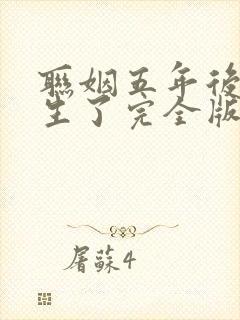 聯姻五年後
生了完全版
屠蘇4